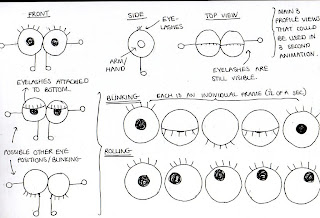 FRONT
SIDE
EYE-
LASHES
ARM/
HAND
TOP VIEW
EYELASHES ARE
STILL VISIBLE.
MAIN 3
PROFILE VIEWS
THAT COULD
BE USED IN
3 SECOND
ANIMATION.
EYELASHES ATTACHED
TO BOTTOM.
POSSIBLE OTHER EYE
POSITIONS/BLINKING
BLINKING
EACH IS AN INDIVIDUAL FRAME
OF A SEC)
ROLLING